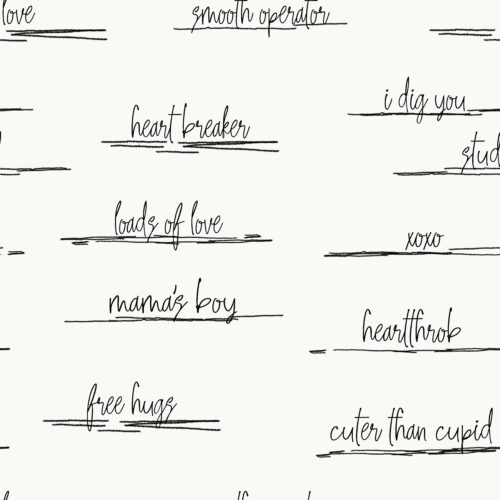 love
smooth operator
i dig you
heart breaker
stud
loads of love
xoxo
mama's boy
heartthrob
free hugs
cuter than cupid